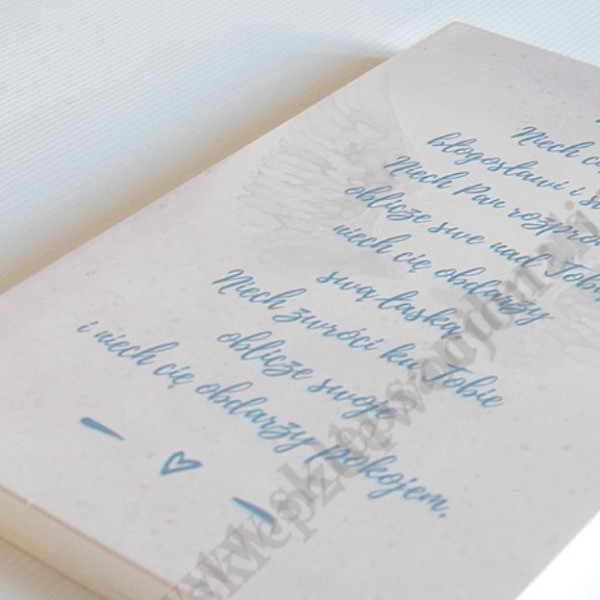 Niech
błogosławi i
Niech Pan
oblicze swe nad Tobą
niech cię obdarzy
swą łaską
Niech zwróci ku Tobie
oblicze swoje
i niech cię obdarzy pokojem.